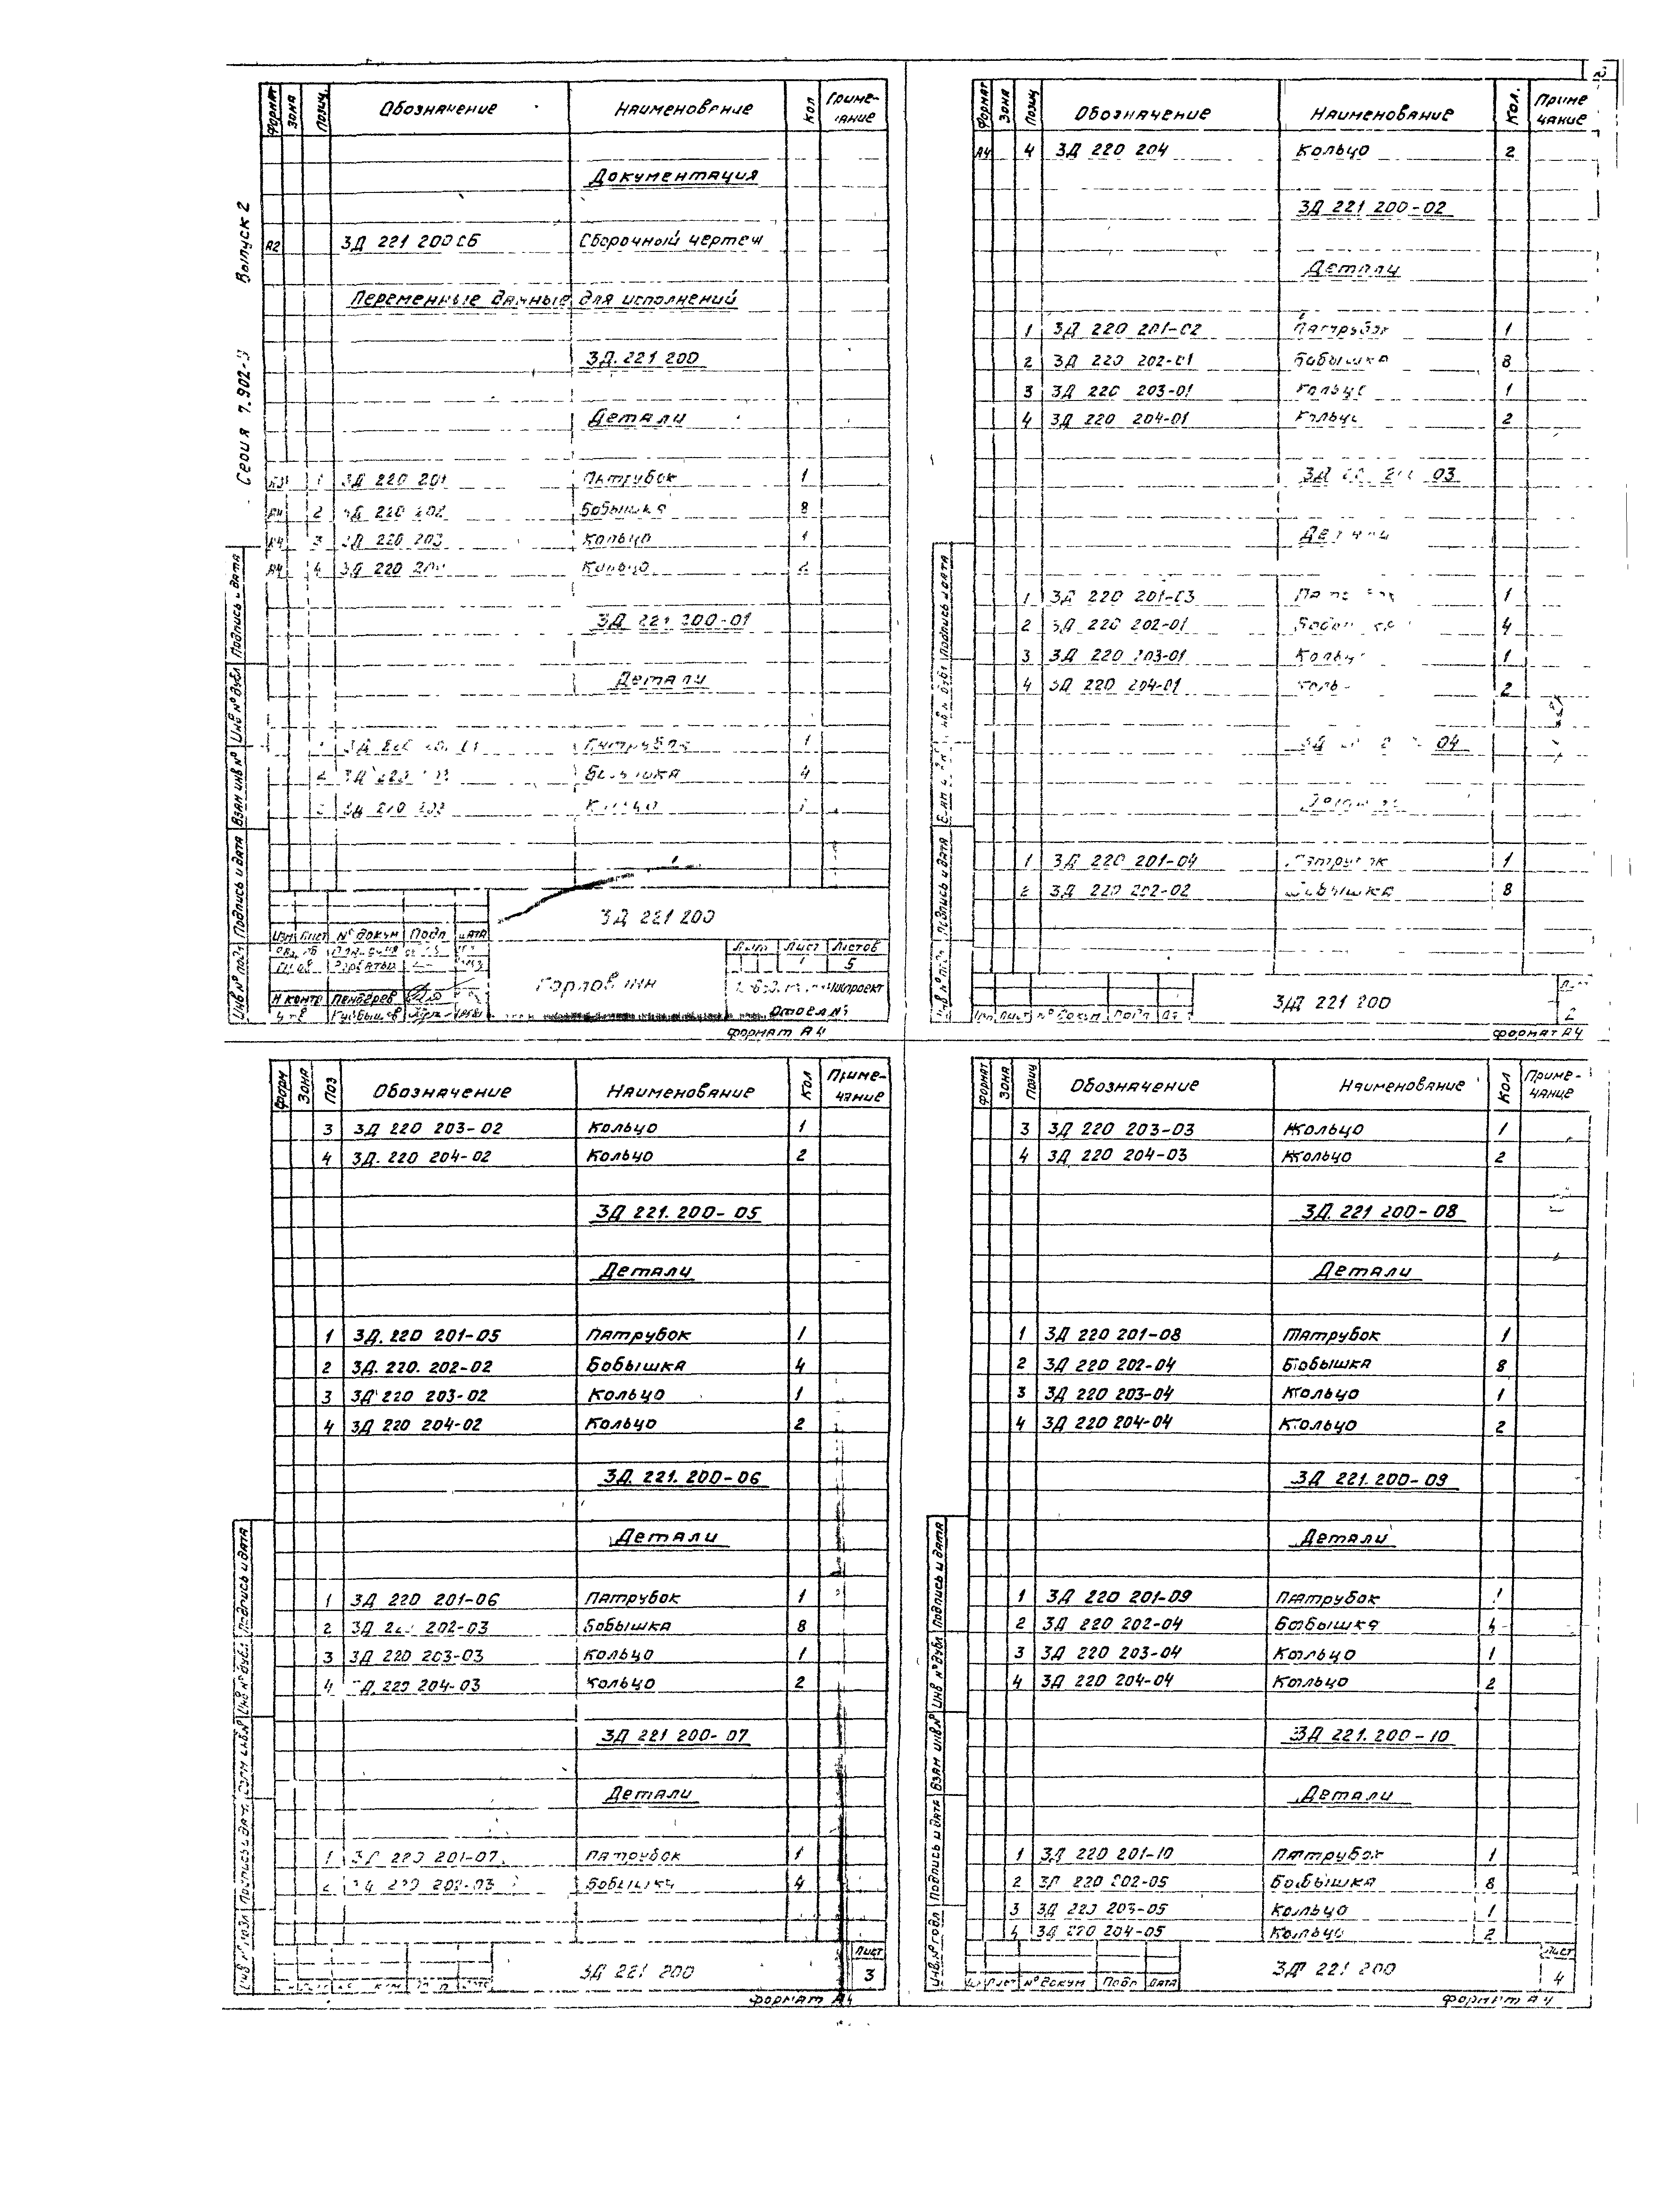 Серия 7.902- Выпуск 2
Формат Зона Позиц. Обозначение Наименование Кол Приме-
чание
Документация
А2 ЗД 221 200 СБ Сборочный чертеж
Переменные данные для исполнений
ЗД. 221 200
Детали
1 ЗД 220 201 Патрубок 1
А4 2 ЗД 220 202 Бобышка 8
А4 3 ЗД 220 203 Кольцо 1
А4 4 ЗД 220 Кольцо 2
ЗД 221 200-01
Детали
Патрубок 1
2 ЗД 220 Бобышка 4
3 ЗД 220 203 Кольцо
ЗД 221 200
Изм Лист № докум Подп Дата
Н контр
Горловин
Лит Лист Листов
1 5
Отдел №
Формат А4
Инв № подл Подпись и дата Взам инв № Инв № дубл Подпись и дата
Формат Зона Позиц Обозначение Наименование Кол. Приме
чание
А4 4 ЗД 220 204 Кольцо 2
ЗД 221 200-02
Детали
1 ЗД 220 201-02 Патрубок 1
2 ЗД 220 202-01 Бобышка 8
3 ЗД 220 203-01 Кольцо 1
4 ЗД 220 204-01 Кольцо 2
ЗД 03
Детали
1 ЗД 220 201-03 1
2 ЗД 220 202-01 4
3 ЗД 220 203-01 Кольцо 1
4 ЗД 220 204-01 2
ЗД 04
1 ЗД 220 201-04 Патрубок 1
2 ЗД 220 202-02 Бобышка 8
ЗД 221 200
Лист
2
Лист № докум Подп
Формат А4
Подпись и дата Подпись и дата
Форм Зона Поз Обозначение Наименование Кол Приме-
чание
3 ЗД 220 203-02 Кольцо 1
4 ЗД. 220 204-02 Кольцо 2
ЗД 221. 200-05
Детали
1 ЗД. 220 201-05 Патрубок 1
2 ЗД. 220. 202-02 Бобышка 4
3 ЗД 220 203-02 Кольцо 1
4 ЗД 220 204-02 Кольцо 2
ЗД. 221. 200-06
Детали
1 ЗД 220 201-06 Патрубок 1
2 ЗД 202-03 Бобышка 8
3 ЗД 220 203-03 Кольцо 1
4 ЗД 220 204-03 Кольцо 2
ЗД 221 200-07
Детали
1 ЗД 220 201-07 Патрубок 1
2 ЗД 220 202-03 Бобышка 4
ЗД 221 200
Лист
3
Формат А4
Инв № дубл Подпись и дата
Формат Зона Позиц Обозначение Наименование Кол Приме-
чание
3 ЗД 220 203-03 Кольцо 1
4 ЗД 220 204-03 Кольцо 2
ЗД. 221 200-08
Детали
1 ЗД 220 201-08 Патрубок 1
2 ЗД 220 202-04 Бобышка 8
3 ЗД 220 203-04 Кольцо 1
4 ЗД 220 204-04 Кольцо 2
ЗД 221. 200-09
Детали
1 ЗД 220 201-09 Патрубок 1
2 ЗД 220 202-04 Бобышка 4
3 ЗД 220 203-04 Кольцо 1
4 ЗД 220 204-04 Кольцо 2
ЗД 221. 200-10
Детали
1 ЗД 220 201-10 Патрубок 1
2 ЗД 220 202-05 Бобышка 8
3 ЗД 220 203-05 Кольцо 1
4 ЗД 220 204-05 Кольцо 2
ЗД 221 200
Лист
4
Лист № докум Подп Дата
Формат А4
Инв. № подл Подпись и дата Взам инв № Инв № дубл Подпись и дата